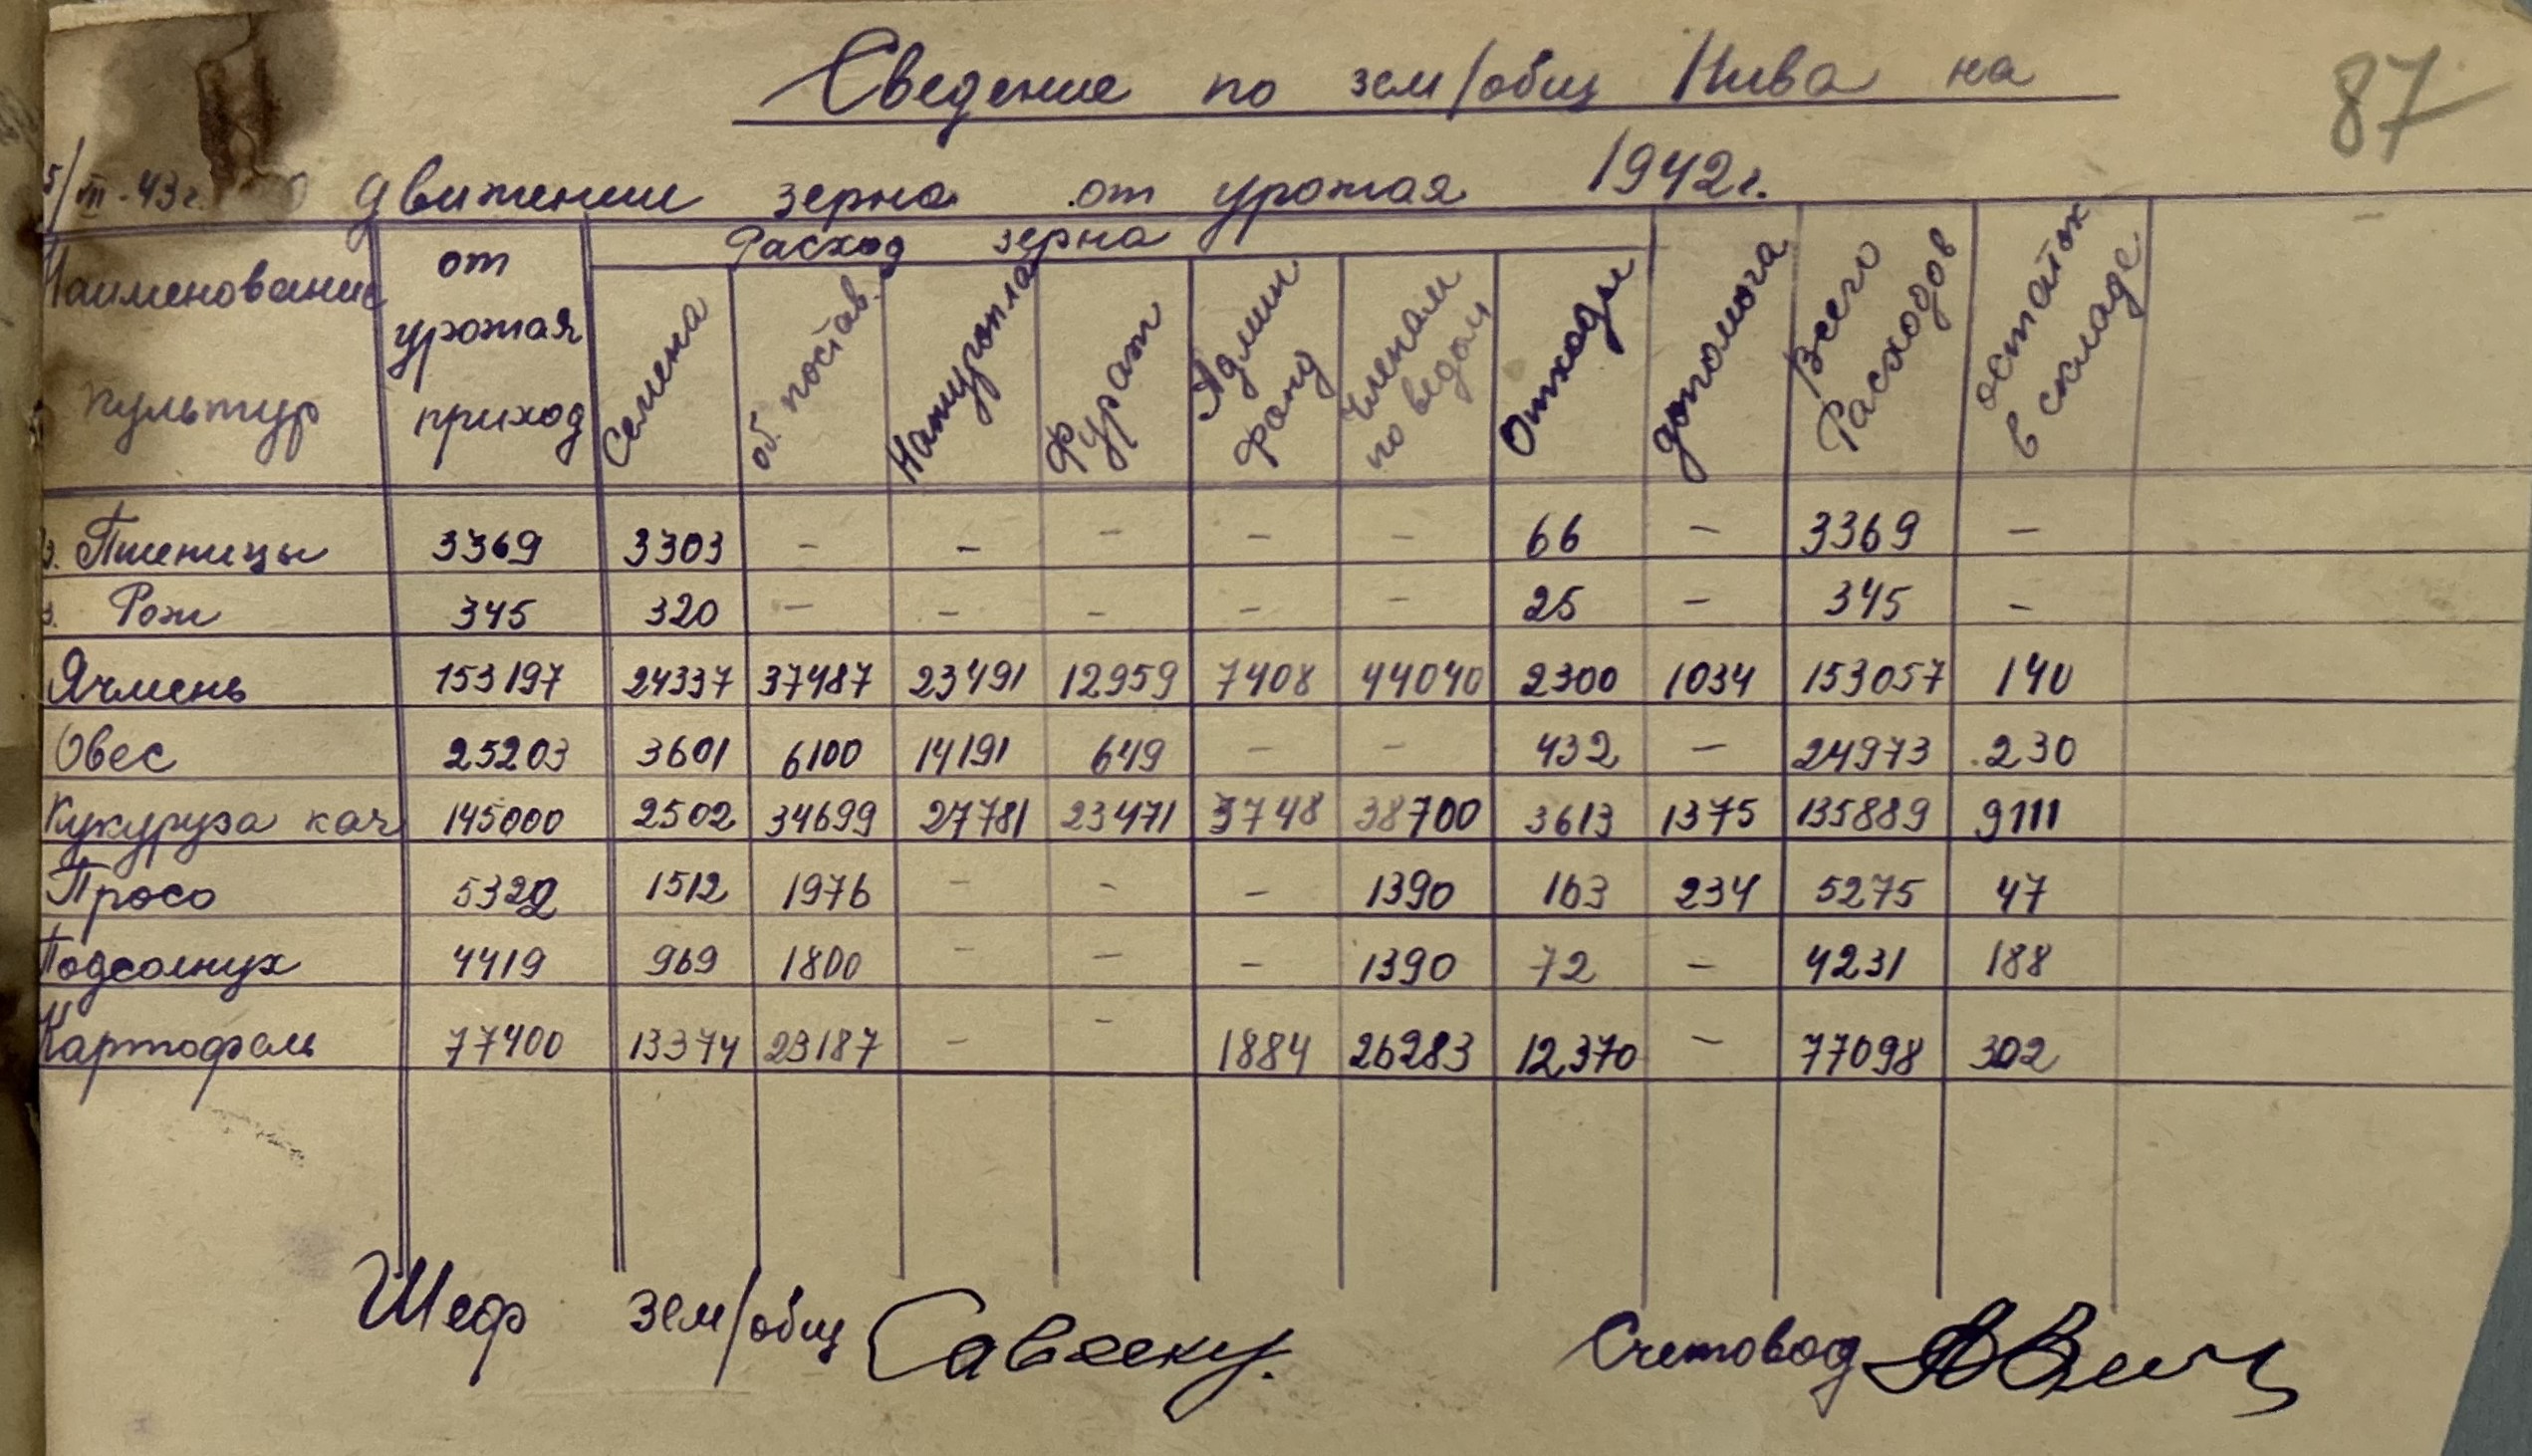 87
Сведение по зем/общ Нива на
5/III-43г. о движении зерна от урожая 1942г.
Наименование культур | от урожая приход | Расход зерна | допомога | Всего Расходов | остаток в складе
Семена | об. постав. | Натуропла | Фураж | Админ Фонд | Членам по ведом | Отходы
з. Пшеницы | 3369 | 3303 | - | - | - | - | - | 66 | - | 3369 | -
з. Рож | 345 | 320 | - | - | - | - | - | 25 | - | 345 | -
Ячмень | 153197 | 24337 | 37487 | 23491 | 12959 | 7408 | 44040 | 2300 | 1034 | 153057 | 140
Овес | 25203 | 3601 | 6100 | 14191 | 649 | - | - | 432 | - | 24973 | 230
Кукуруза кач | 145000 | 2502 | 34699 | 27781 | 23471 | 3748 | 38700 | 3613 | 1375 | 135889 | 9111
Просо | 5322 | 1512 | 1976 | - | - | - | 1390 | 163 | 234 | 5275 | 47
Подсолнух | 4419 | 969 | 1800 | - | - | - | 1390 | 72 | - | 4231 | 188
Картофель | 77400 | 13374 | 23187 | - | - | 1884 | 26283 | 12,370 | - | 77098 | 302
Шеф зем/общ Савееку. Счетовод